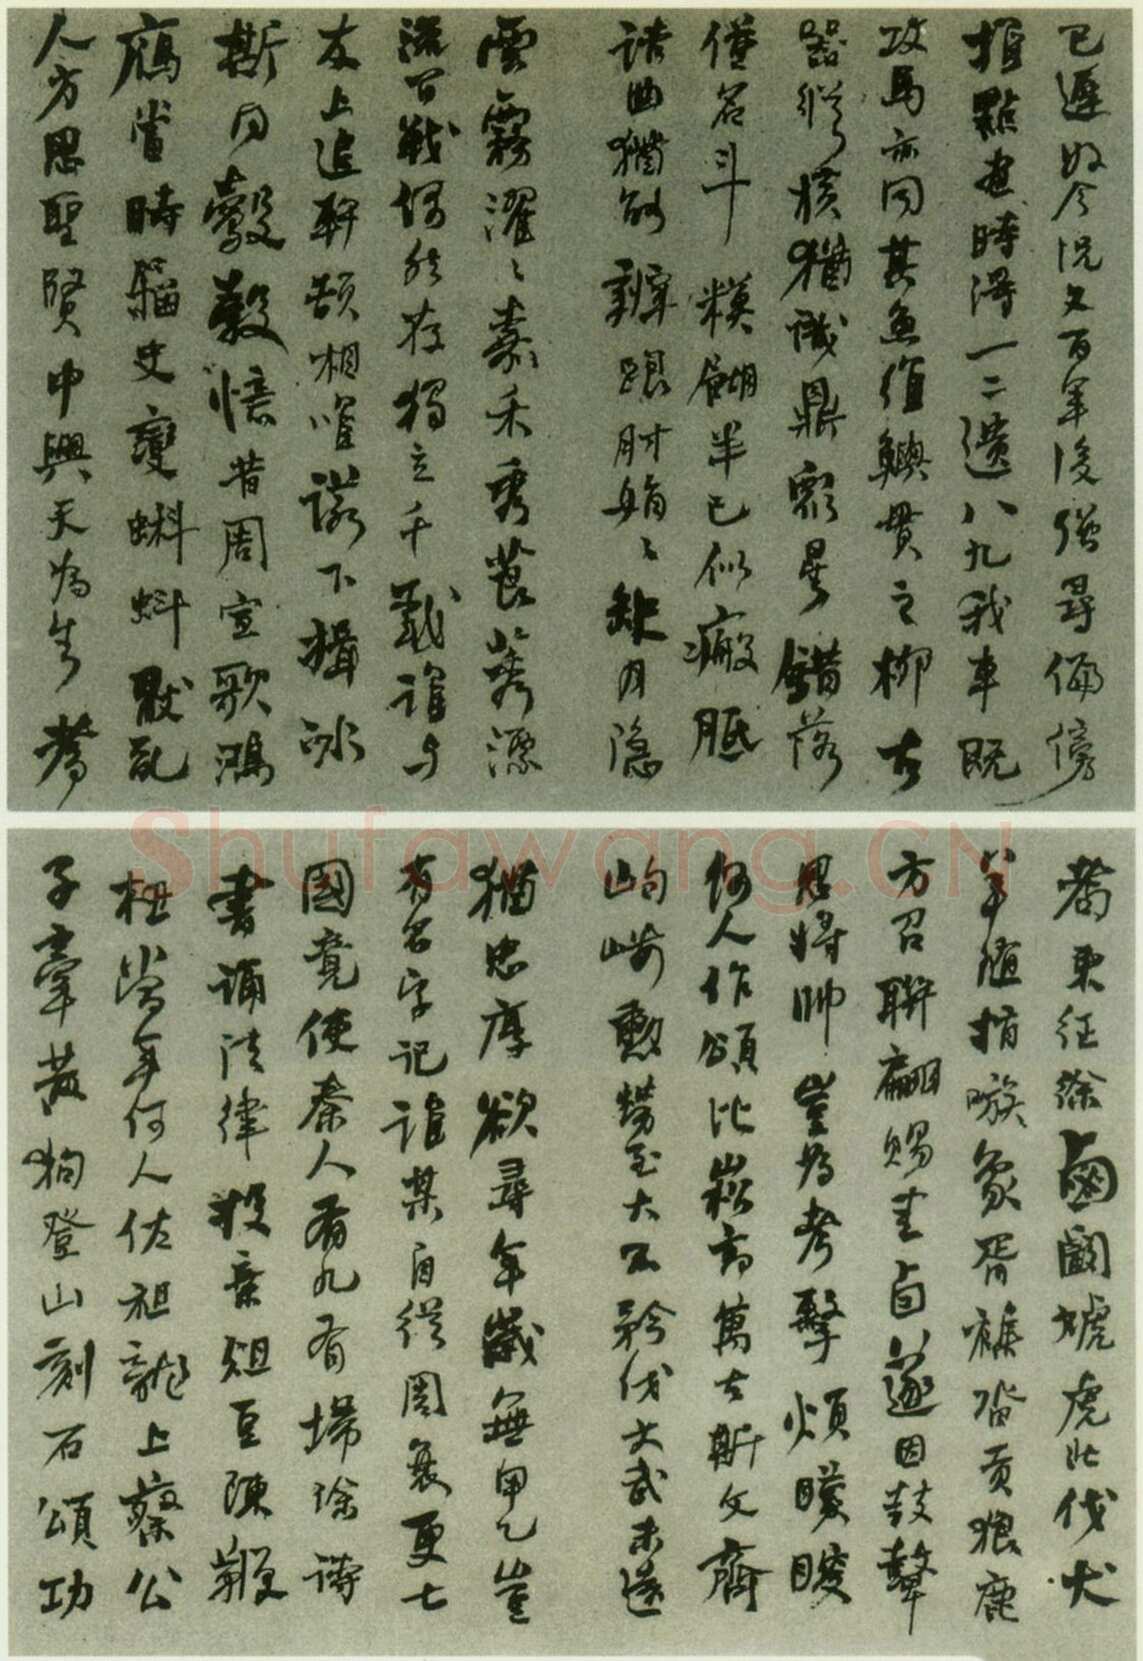 已遲如今況又百年後強尋偏傍
推點畫時得一二遺八九我車既
攻馬亦同其魚維鱮貫之柳古
器縱橫猶識鼎眾星錯落
僅名斗糢餬半已似瘢胝
詰曲猶能辨跟肘娟〻缺月隱
雲霧濯〻嘉禾秀莨莠漂
流百戰偶然存獨立千載誰與
友上追軒頡相唯諾下揖冰
斯同鷇彀憶昔周宣歌鴻
鴈當時籀史變蝌蚪厭亂
人方思聖賢中興天為生耆
耇東征徐虜闞虓虎北伐犬
羊隨指嗾象胥襍沓貢狼鹿
方召聯翩賜圭卣遂因鼓鼙
思將帥豈為考擊煩矇瞍
何人作頌比崧高萬古斯文齊
岣嶁勳勞至大不矜伐文武未遠
猶忠厚欲尋年歲無甲乙豈
有名字記誰某自從周衰更七
國竟使秦人有九有掃除詩
書誦法律投棄俎豆陳鞭
杻當年何人佐祖龍上蔡公
子牽黃狗登山刻石頌功
Shufawang.CN